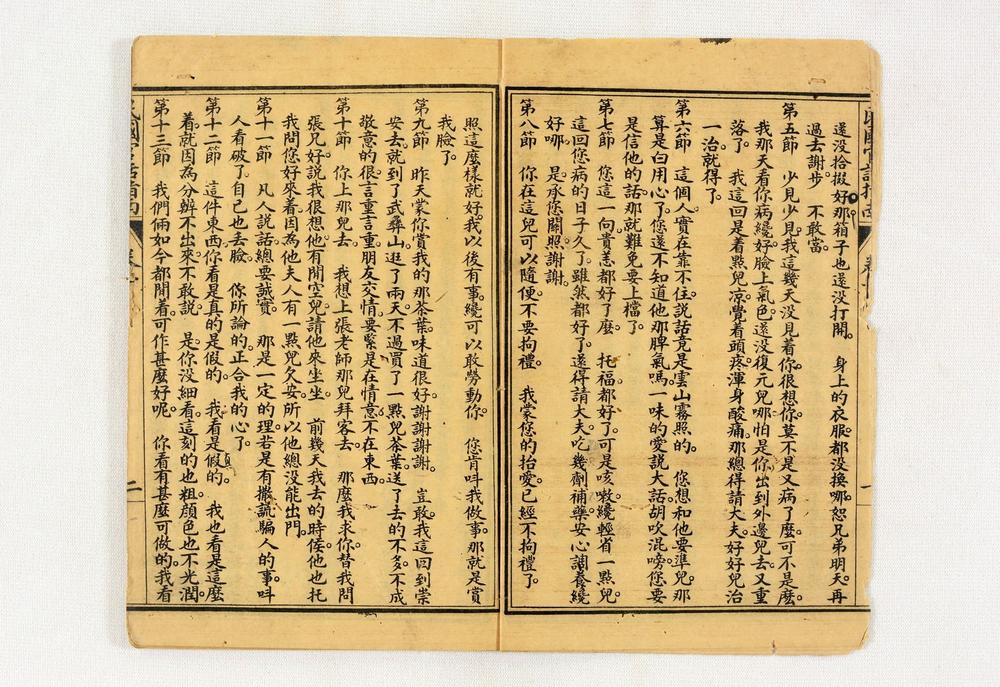 還沒拾掇好那箱子也還沒打開。 身上的衣服都沒換哪恕兄弟明天再
過去謝步 不敢當
第五節 少見少見我這幾天沒見着你很想你莫不是又病了麼可不是麼。
我那天看你病纔好臉上氣色還沒復元兒哪怕是你出到外邊兒去又重
落了 我這回是着點兒凉覺着頭疼渾身酸痛那總得請大夫好好兒治
一治就得了。
第六節 這個人實在靠不住說話竟是雲山霧照的。 您想和他要準兒那
算是白用心了您還不知道他那脾氣嗎一味的愛說大話胡吹混嗙您要
是信他的話那就難免要上檔了。
第七節 您這一向貴恙都好了麼 托福都好了可是咳嗽纔輕省一點兒。
這回您病的日子久了雖然都好了還得請大夫吃幾劑補藥安心調養纔
好哪。 是承您關照謝謝。
第八節 你在這兒可以隨便不要拘禮 我蒙您的抬愛已經不拘禮了
照這麼樣就好我以後有事纔可以敢勞動你 您肯呌我做事那就是賞
我臉了。
第九節 昨天蒙你賞我的那茶葉味道很好謝謝謝謝。 豈敢我這回到崇
安去就到了武彝山逛了兩天不過買了一點兒茶葉送了去的不多不成
敬意的很言重言重朋友交情要緊是在情意不在東西
第十節 你上那兒去 我想上張老師那兒拜客去 那麼我求你替我問
張兄好說我很想他有閒空兒請他來坐坐 前幾天我去的時侯他也托
我問您好來着因為他夫人有一點兒欠安所以他總沒能出門。
第十一節 凡人說話總要誠實 那是一定的理若是有撒謊騙人的事呌
人看破了自己也丢臉 你所論的正合我的心了
第十二節 這件東西你看是真的是假的 我看是假的 我也看是這麼
着就因為分辨不出來不敢說 是你沒細看這刻的也粗顔色也不光潤
第十三節 我們倆如今都閒着可作甚麼好呢 你看有甚麼可做的我看
一
二